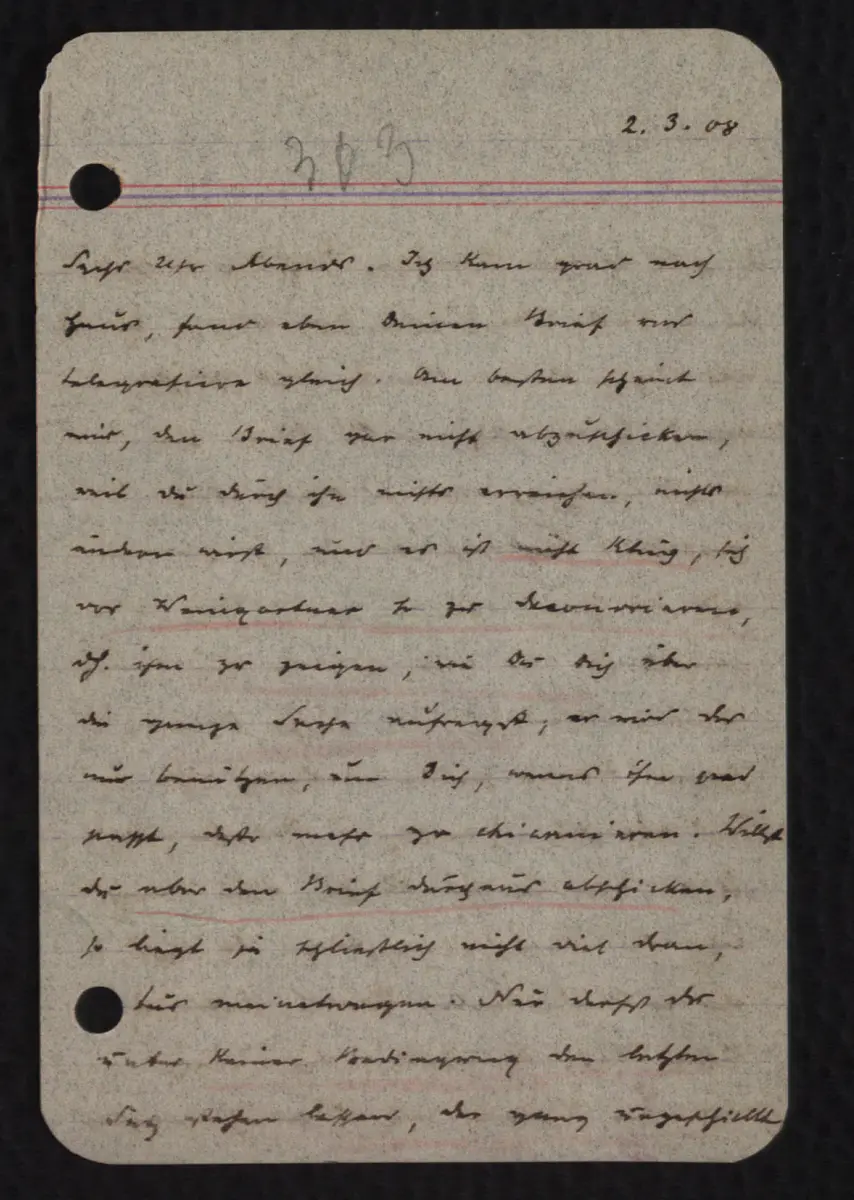 2. 3. 08
303
Sechs Uhr Abends. Ich kam grad nach
Haus, fand eben deinen Brief und
telegrafiere gleich. Am besten scheint
mir, den Brief gar nicht abzuschicken,
weil du durch ihn nichts erreichen, nichts
ändern wirst, und es ist nicht klug, sich
vor Weingartner so zu decouvrieren,
dh. ihm zu zeigen, wie du dich über
die ganze Sache aufregst; er wird das
nur benützen, um Dich, wenns ihm grad
passt, desto mehr zu chicanieren. Willst
du aber den Brief durchaus abschicken,
so liegt ja schließlich nicht viel dran,
tus meinetwegen. Nur darfst du
unter keiner Bedingung den letzten
Satz stehen lassen, der ganz ungeschickt